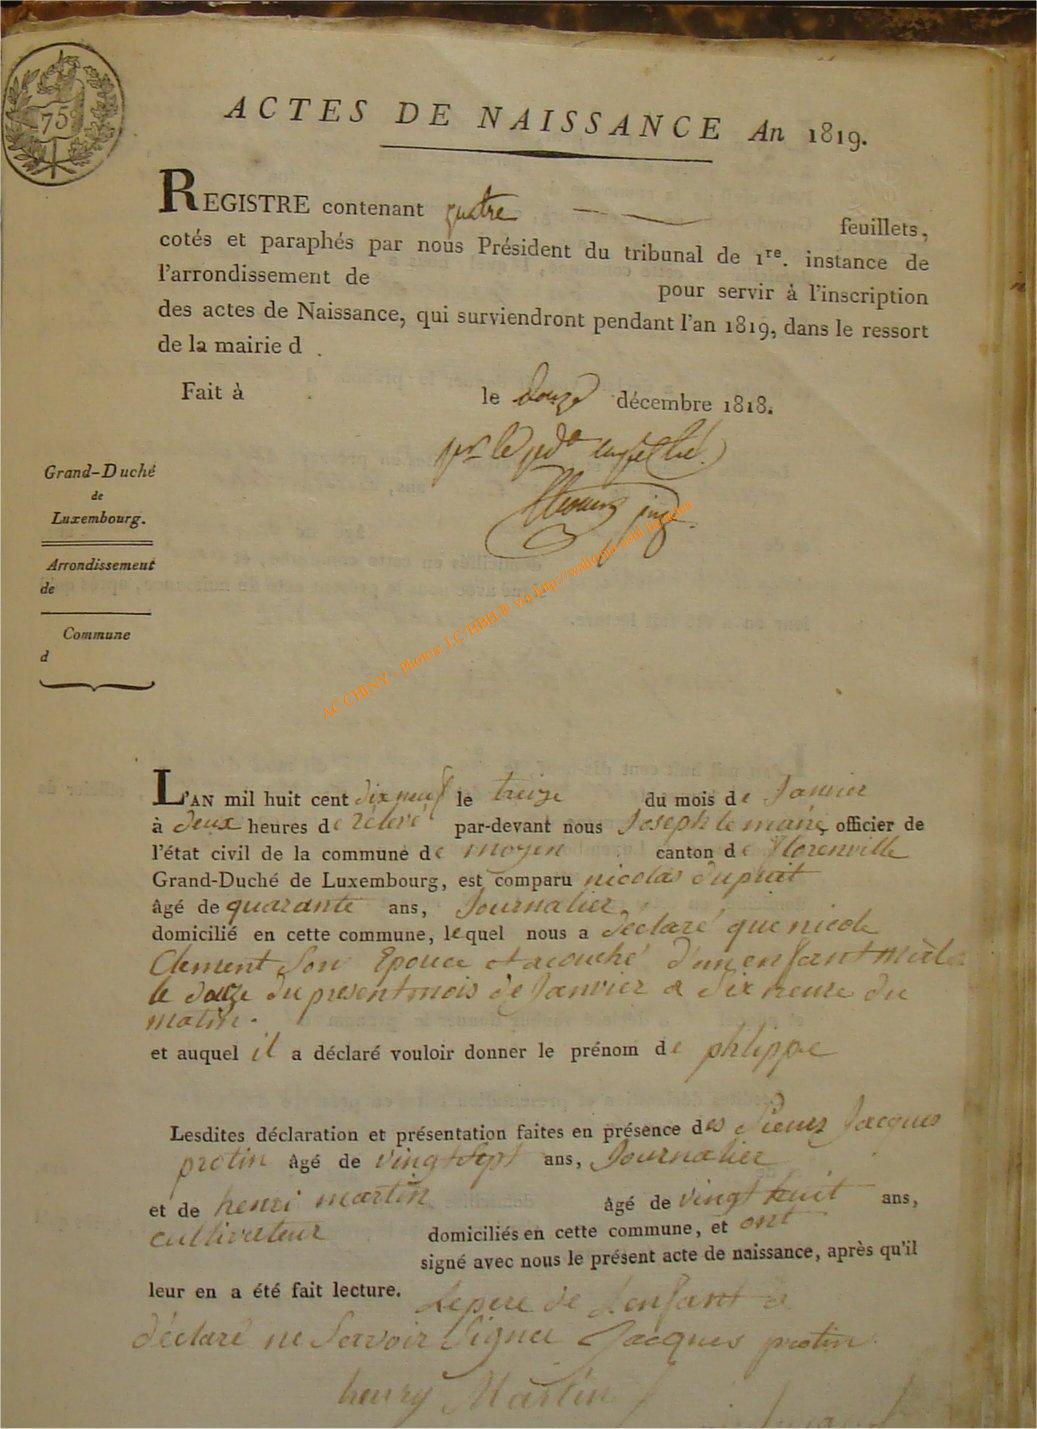 75
ACTES DE NAISSANCE An 1819.
REGISTRE contenant quatre feuillets,
cotés et paraphés par nous Président du tribunal de 1re. instance de
l'arrondissement de pour servir à l'inscription
des actes de Naissance, qui surviendront pendant l'an 1819, dans le ressort
de la mairie d .
Fait à le douze décembre 1818.
pr le
juge
Grand-Duché
de
Luxembourg.
Arrondissement
de
Commune
d
AC CHINY - photos J.C HBHLB via http://wallonia-asbl.be
L'AN mil huit cent dix neuf le treize du mois de Janvier
à deux heures de rélevé par-devant nous Joseph le maire officier de
l'état civil de la commune de moyen canton de florenville
Grand-Duché de Luxembourg, est comparu nicolas duprait
âgé de quarante ans, Journalier
domicilié en cette commune, lequel nous a déclaré que nicole
Clement Son Epouce et acouché d'un enfant mâle
le douze du present mois de Janvier a Six heure du
matin.
et auquel il a déclaré vouloir donner le prénom de phlippe
Lesdites déclaration et présentation faites en présence des Sieurs Jacques
protin âgé de vingt Sept ans, Journalier
et de henri martin âgé de vingt huit ans,
cultivateur domiciliés en cette commune, et ont
signé avec nous le présent acte de naissance, après qu'il
leur en a été fait lecture. Le pere de L'enfant a
déclaré ne Savoir Signer Jacques protin
henry Martin